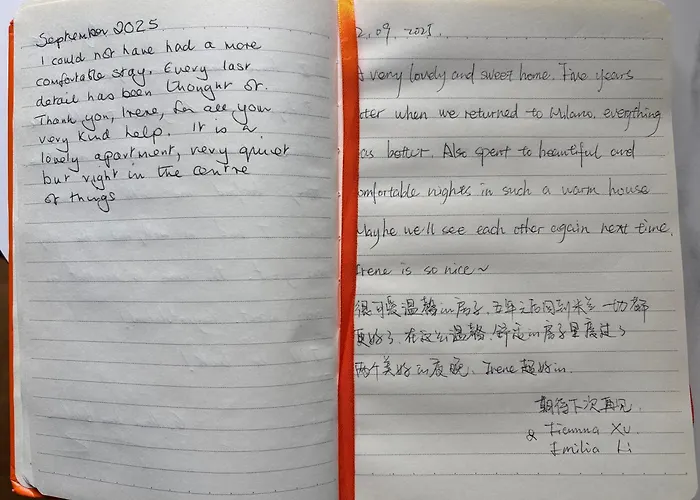 September 2025
I could not have had a more
comfortable stay. Every last
detail has been thought of.
Thank you, Irene, for all your
very kind help. It is a
lovely apartment, very quiet
but right in the centre
of things
2.09.2025.
very lovely and sweet home. Five years
ter when we returned to Milano, everything
as better. Also spent to beautiful and
omfortable nights in such a warm house
Maybe we'll see each other again next time.
Irene is so nice~
很可爱温馨的房子,五年之后回到米兰一切都
更好了,在这么温馨,舒适的房子里度过了
两个美好的夜晚、Irene超好的.
期待下次再见.
& Tianna Xu
Emilia Li